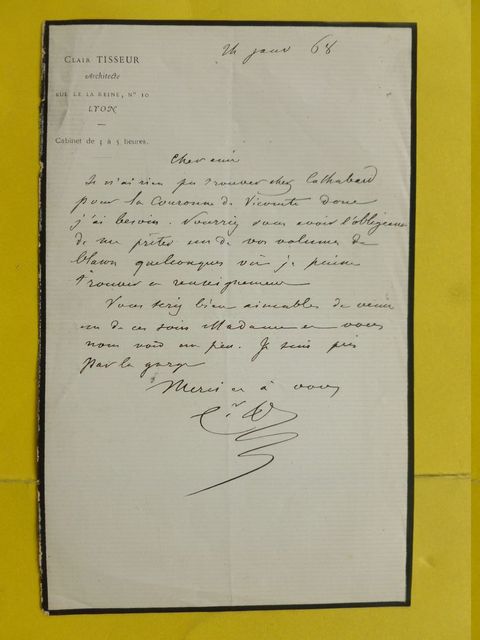 CLAIR TISSEUR
Architecte
RUE DE LA REINE, N° 10
LYON
Cabinet de 3 à 5 heures.
24 janv 68
Cher ami
Je n'ai rien pu trouver chez
pour la Couronne de Vicomte dont
j'ai besoin. Pourriez vous avoir l'obligeance
de me prêter un de vos volumes de
blason quelconques où je puisse
trouver ce renseignement
Vous seriez bien aimables de venir
un de ces soirs Madame et vous
nous voir un peu. Je suis pris
par la gorge
Merci et à vous